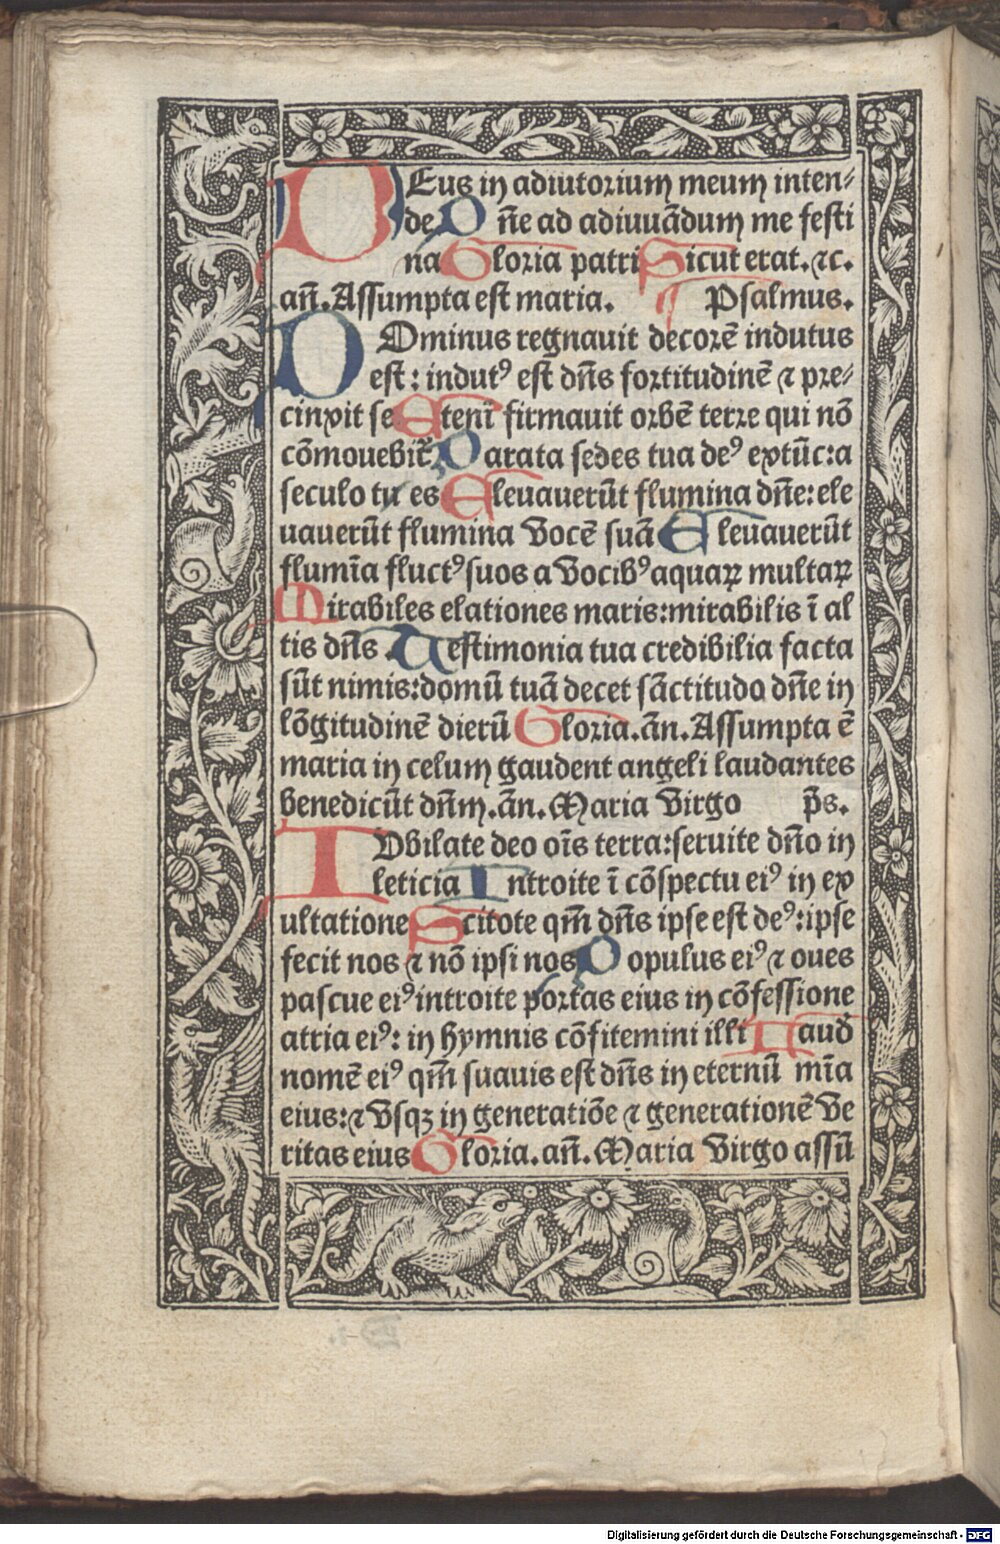 DEus in adiutorium meum inten⸗
de Dñe ad adiuuãdum me festi
na Gloria patri Sicut erat. ⁊c.
añ. Assumpta est maria. Psalmus.
DOminus regnauit decorẽ indutus
est: indutꝰ est dñs fortitudinẽ ⁊ pre⸗
cinxit se Etenĩ firmauit orbẽ terre qui nõ
cõmouebit᷑ Parata sedes tua deꝰ extũc: a
seculo tu es Eleuauerũt flumina dñe: ele
uauerũt flumina vocẽ suã Eleuauerũt
flumĩa fluctꝰ suos a vocibꝰ aquaꝝ multaꝝ
Mirabiles elationes maris: mirabilis ĩ al
tis dñs. Testimonia tua credibilia facta
sũt nimis: domũ tuã decet sãctitudo dñe in
lõgitudinẽ dierũ Gloria. ãn. Assumpta ẽ
maria in celum gaudent angeli laudantes
benedicũt dñm. ãn. Maria virgo p̃s.
IVbilate deo oĩs terra: seruite dño in
leticia Introite ĩ cõspectu eiꝰ in ex
ultatione Scitote qm̃ dñs ipse est deꝰ: ipse
fecit nos ⁊ nõ ipsi nos Populus eiꝰ ⁊ oues
pascue eiꝰ introite portas eius in cõfessione
atria eiꝰ: in hymnis cõfitemini illi Laud̃
nomẽ eiꝰ qm̃ suauis est dñs in eternũ mĩa
eius: ⁊ vsqꝫ in generatiõe ⁊ generationẽ ve
ritas eius Gloria. añ. Maria virgo assũ
Digitalisierung gefördert durch die Deutsche Forschungsgemeinschaft - DFG